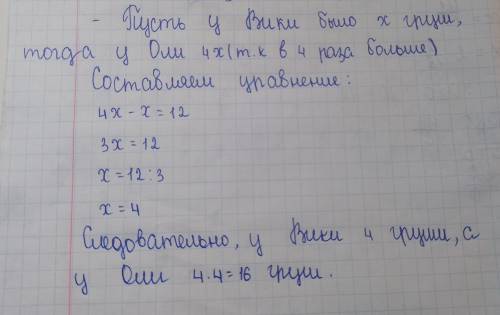 - Пусть у Вики было x груш,
тогда у Оли 4x (т.к в 4 раза больше)
Составляем уравнение:
4x - x = 12
3x = 12
x = 12 : 3
x = 4
Следовательно, у Вики 4 груши, а
у Оли 4·4=16 груш.